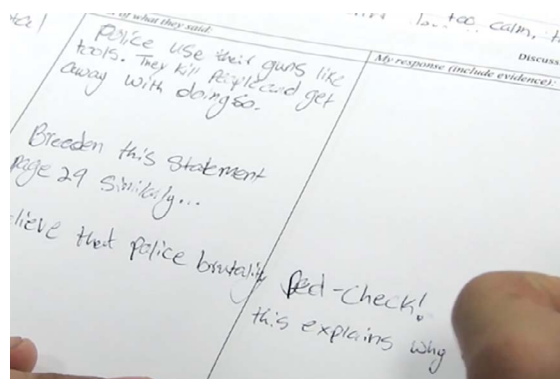 too calm,
Discuss
of what they said:
My response (include evidence):
Police use their guns like
tools. They kill people and get
away with doing so.
Breeden this statement
page 29 similarly...
lieve that police brutality
Red-check!
this explains why